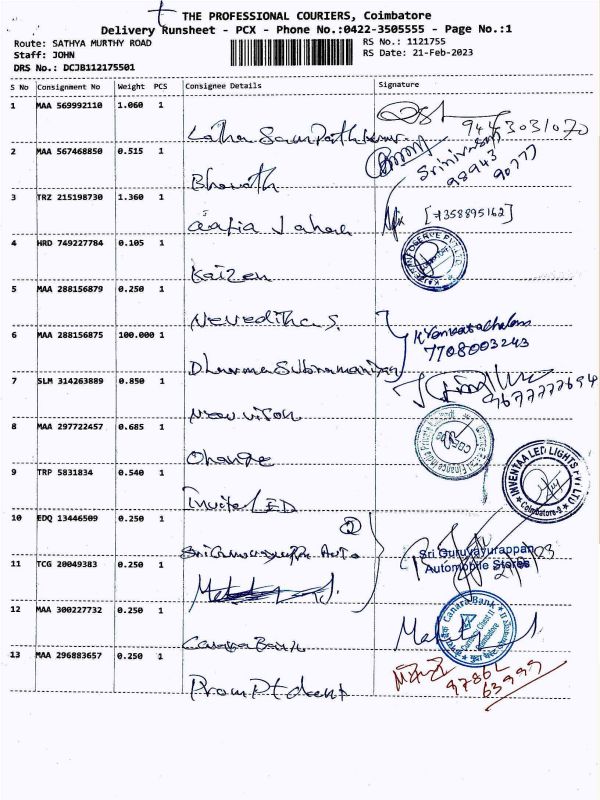 THE PROFESSIONAL COURIERS, Coimbatore
Delivery Runsheet - PCX - Phone No.:0422-3505555 - Page No.:1
Route: SATHYA MURTHY ROAD
RS No.: 1121755
Staff: JOHN
RS Date: 21-Feb-2023
DRS No.: DCJB112175501
S No Consignment No Weight PCS Consignee Details Signature
1 MAA 569992110 1.060 1
9443031070
2 MAA 567468850 0.515 1 Bharath
Srinivasan
98943
90777
3 TRZ 215198730 1.360 1
[7358895162]
4 HRD 749227784 0.105 1 Kaizen
5 MAA 288156879 0.250 1 Neveditha S.
K Venkatachalam
7708003243
6 MAA 288156875 100.000 1 Dharma Subramaniyan
7 SLM 314263889 0.850 1
9677777694
8 MAA 297722457 0.685 1 Orange
9 TRP 5831834 0.540 1
INVENTAA LED LIGHTS PVT LTD
Coimbatore-2
10 EDQ 13446509 0.250 1 Sri Guruvayurappa Auto
2
Sri Guruvayurappan
Automobile Stores
11 TCG 20049383 0.250 1
12 MAA 300227732 0.250 1 Canara Bank
Canara Bank
Coimbatore
13 MAA 296883657 0.250 1 Prompt dent
97862
63999